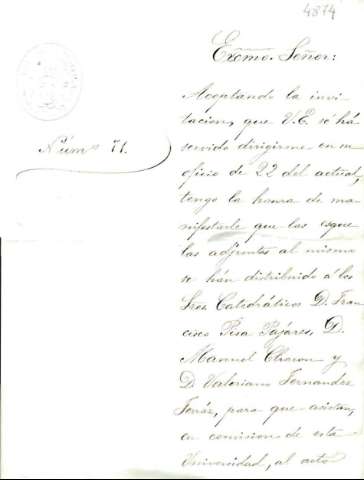 4874
Excmo. Señor:
Núm.º 71.
Aceptando la invi-
tacion, que V.E. se há
servido dirigirme en su
oficio de 22 del actual,
tengo la honra de ma-
nifestarle que las esque-
las adjuntas al mismo
se hán distribuido á los
Sres Catedráticos D. Fran-
cisco Pisa Pajares, D.
Manuel y
D. Valeriano Fernandez
Ferráz, para que asistan,
en comision de esta
Universidad, al acto